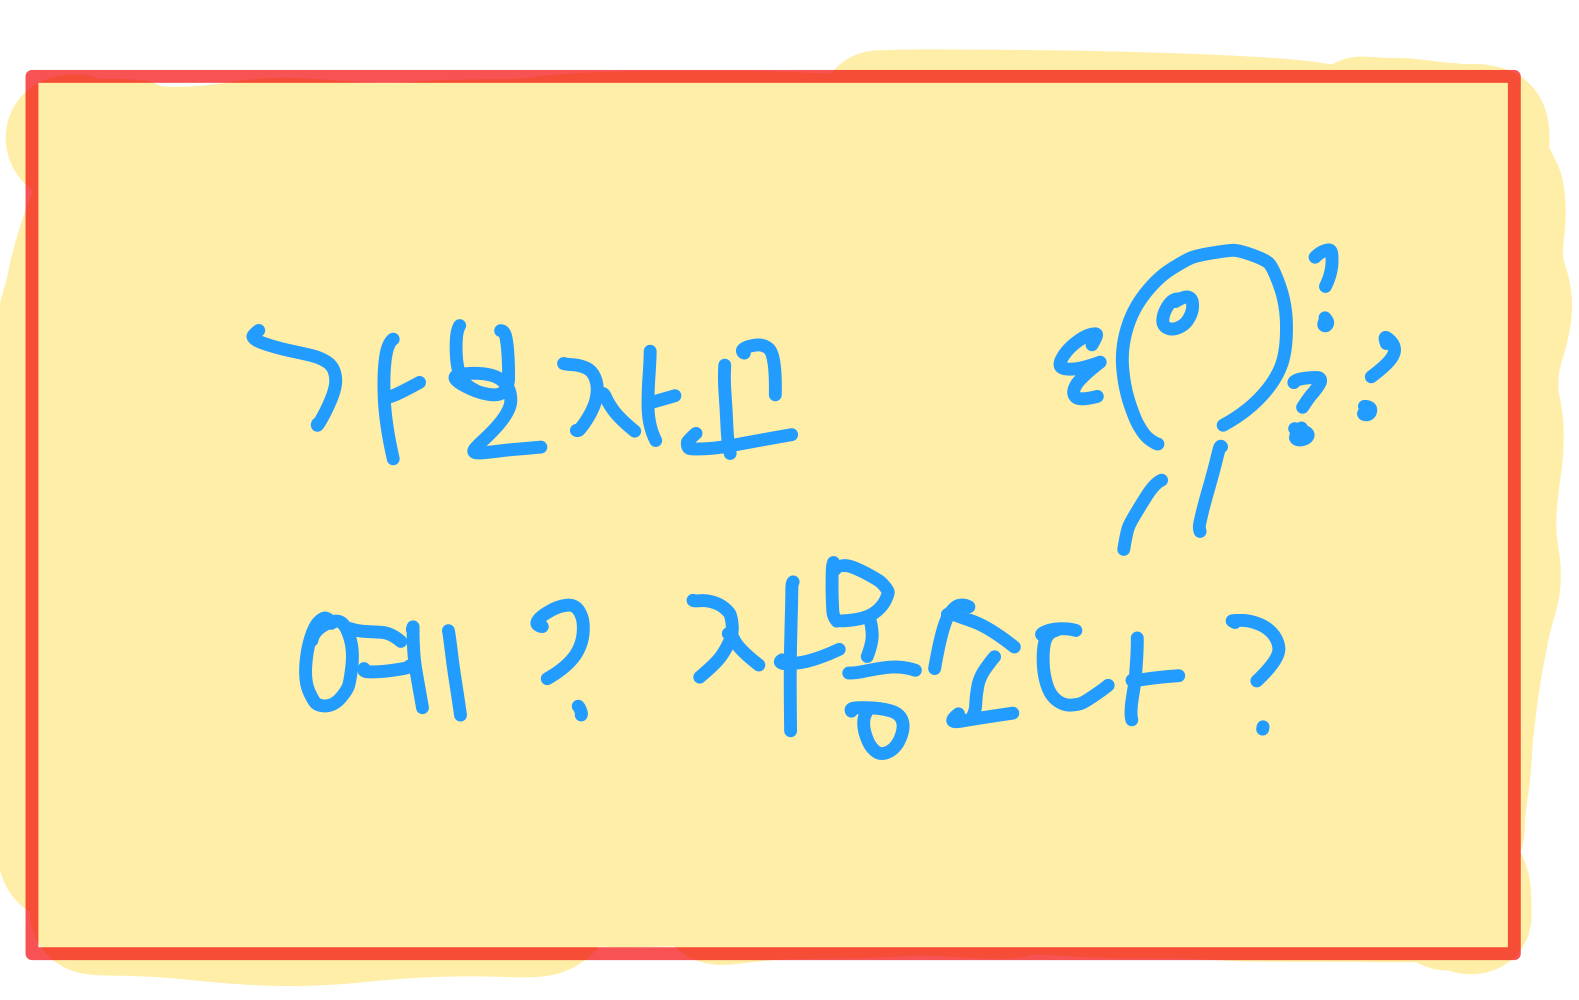 가보자고
???
예? 자몽소다?